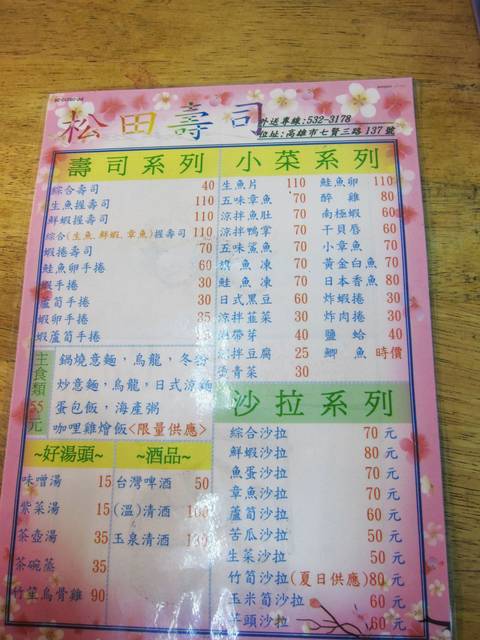 松田壽司
外送專線:532-3178
位址:高雄市七賢三路137號
壽司系列
綜合壽司 40
生魚握壽司 110
鮮蝦握壽司 110
綜合(生魚.鮮蝦.章魚)握壽司 110
蝦捲壽司 70
鮭魚卵手捲 60
蝦手捲 30
蘆筍手捲 30
蝦卵手捲 35
蝦蘆筍手捲
小菜系列
生魚片 110
五味章魚 70
涼拌魚肚 70
涼拌鴨掌 70
五味鯊魚 70
魚凍 70
鮭魚凍 70
日式黑豆 60
涼拌韮菜 30
海帶芽 40
涼拌豆腐 25
燙青菜 30
鮭魚卵 110
醉雞 80
南極蝦 60
干貝唇 60
小章魚 70
黃金白魚 70
日本香魚 80
炸蝦捲 30
炸肉捲 30
鹽蛤 40
鯽魚 時價
主食類
55元
鍋燒意麵,烏龍,冬粉
炒意麵,烏龍,日式涼麵
蛋包飯,海產粥
咖哩雞燴飯<限量供應>
沙拉系列
綜合沙拉 70元
鮮蝦沙拉 80元
魚蛋沙拉 70元
章魚沙拉 70元
蘆筍沙拉 60元
苦瓜沙拉 50元
生菜沙拉 50元
竹筍沙拉(夏日供應)80元
玉米筍沙拉 60元
芋頭沙拉 60元
~好湯頭~
味噌湯 15
紫菜湯 15
茶壺湯 35
茶碗蒸 35
竹笙烏骨雞 90
~酒品~
台灣啤酒 50
(溫)清酒 100
玉泉清酒